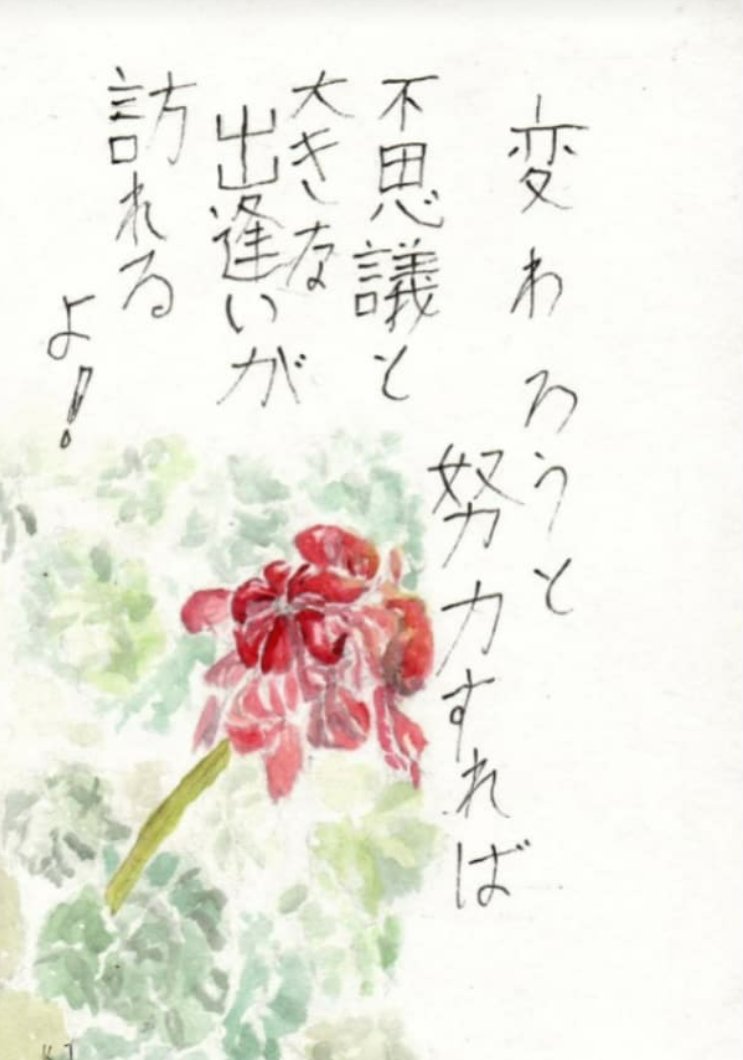 変わろうと
努力すれば
不思議と
大きな
出逢いが
訪れる
よ!